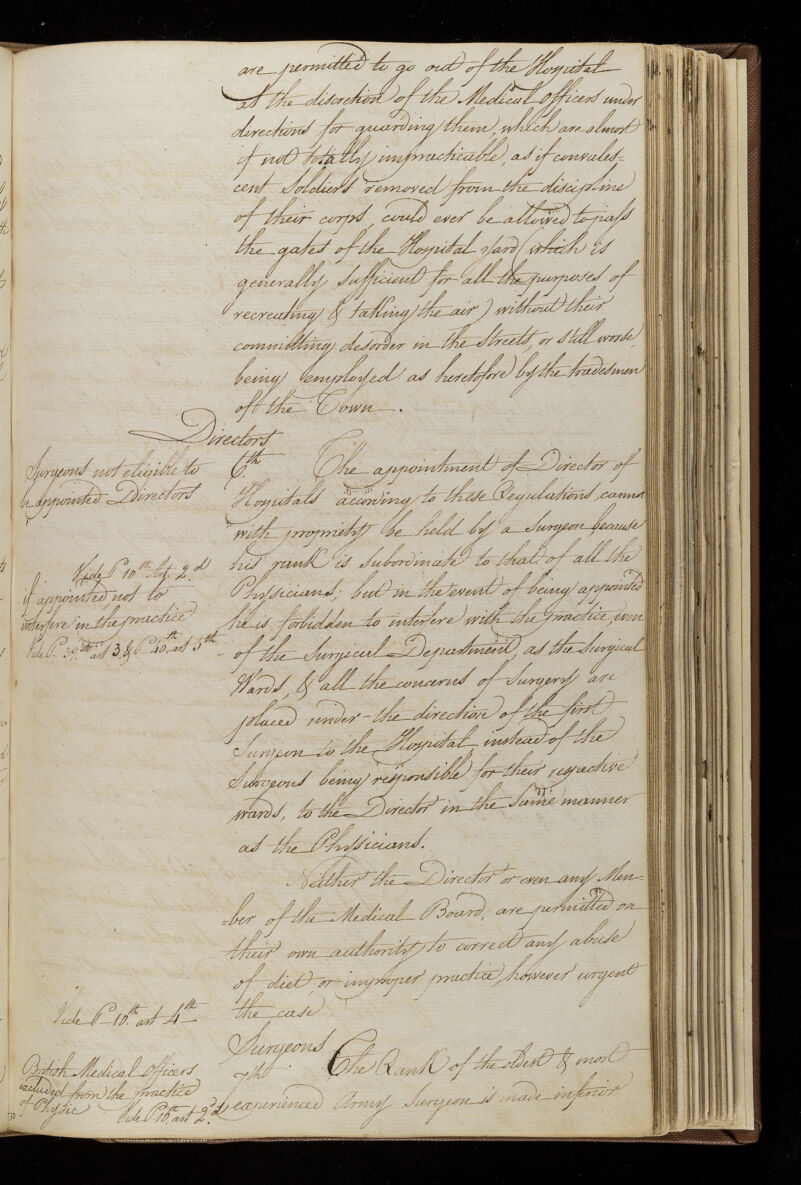 are permitted to go out of the Hospital
at the discretion of the Medical Officers under
directions for guarding them, which are almost
if not totally impracticable, as if convales=
cent Soldiers removed from the discipline
of their corps, could ever be allowed to pass
the gates of the Hospital yard (which is
generally sufficient for all the purposes of
recreating & taking the air) without their
committing desorder in the Streets, or still worse,
being employed as heretofore by the tradesmen
oft the Town.
Directors
Surgeons not eligible to
be appointed Directors
6.th The appointment of Director of
Hospitals according to these Regulations, cannot
with propriety be held by a Surgeon, because
his rank is subordinate to that of all the
Vide P 10th Art. 2.d
if appointed, not to
interfere in the practice
Vide P. 39.th art 3 & P 40.th art 5th
Physicians; but in the event of being appointed
he is forbidden to interfere with the practice, even
of the Surgical Department, as the Surgical
Wards, & all the concerns of Surgery are
placed under the direction of the first
Surgeon to the Hospital instead of the
Surgeons being responsible for their respective
wards, to the Director in the same manner
as the Physicians.
Neither the Director or even any Mem-
=ber of the Medical Board, are permitted on
their own authority to correct any abuse
of diet or improper practice, however urgent
the case
Vide P 10.th art 4th
Surgeons
British Medical Officers
excluded from the practice
of Physic Vide P 10.th art 2.d
7th The Rank of the oldest & most
experienced Army Surgeon is made inferior